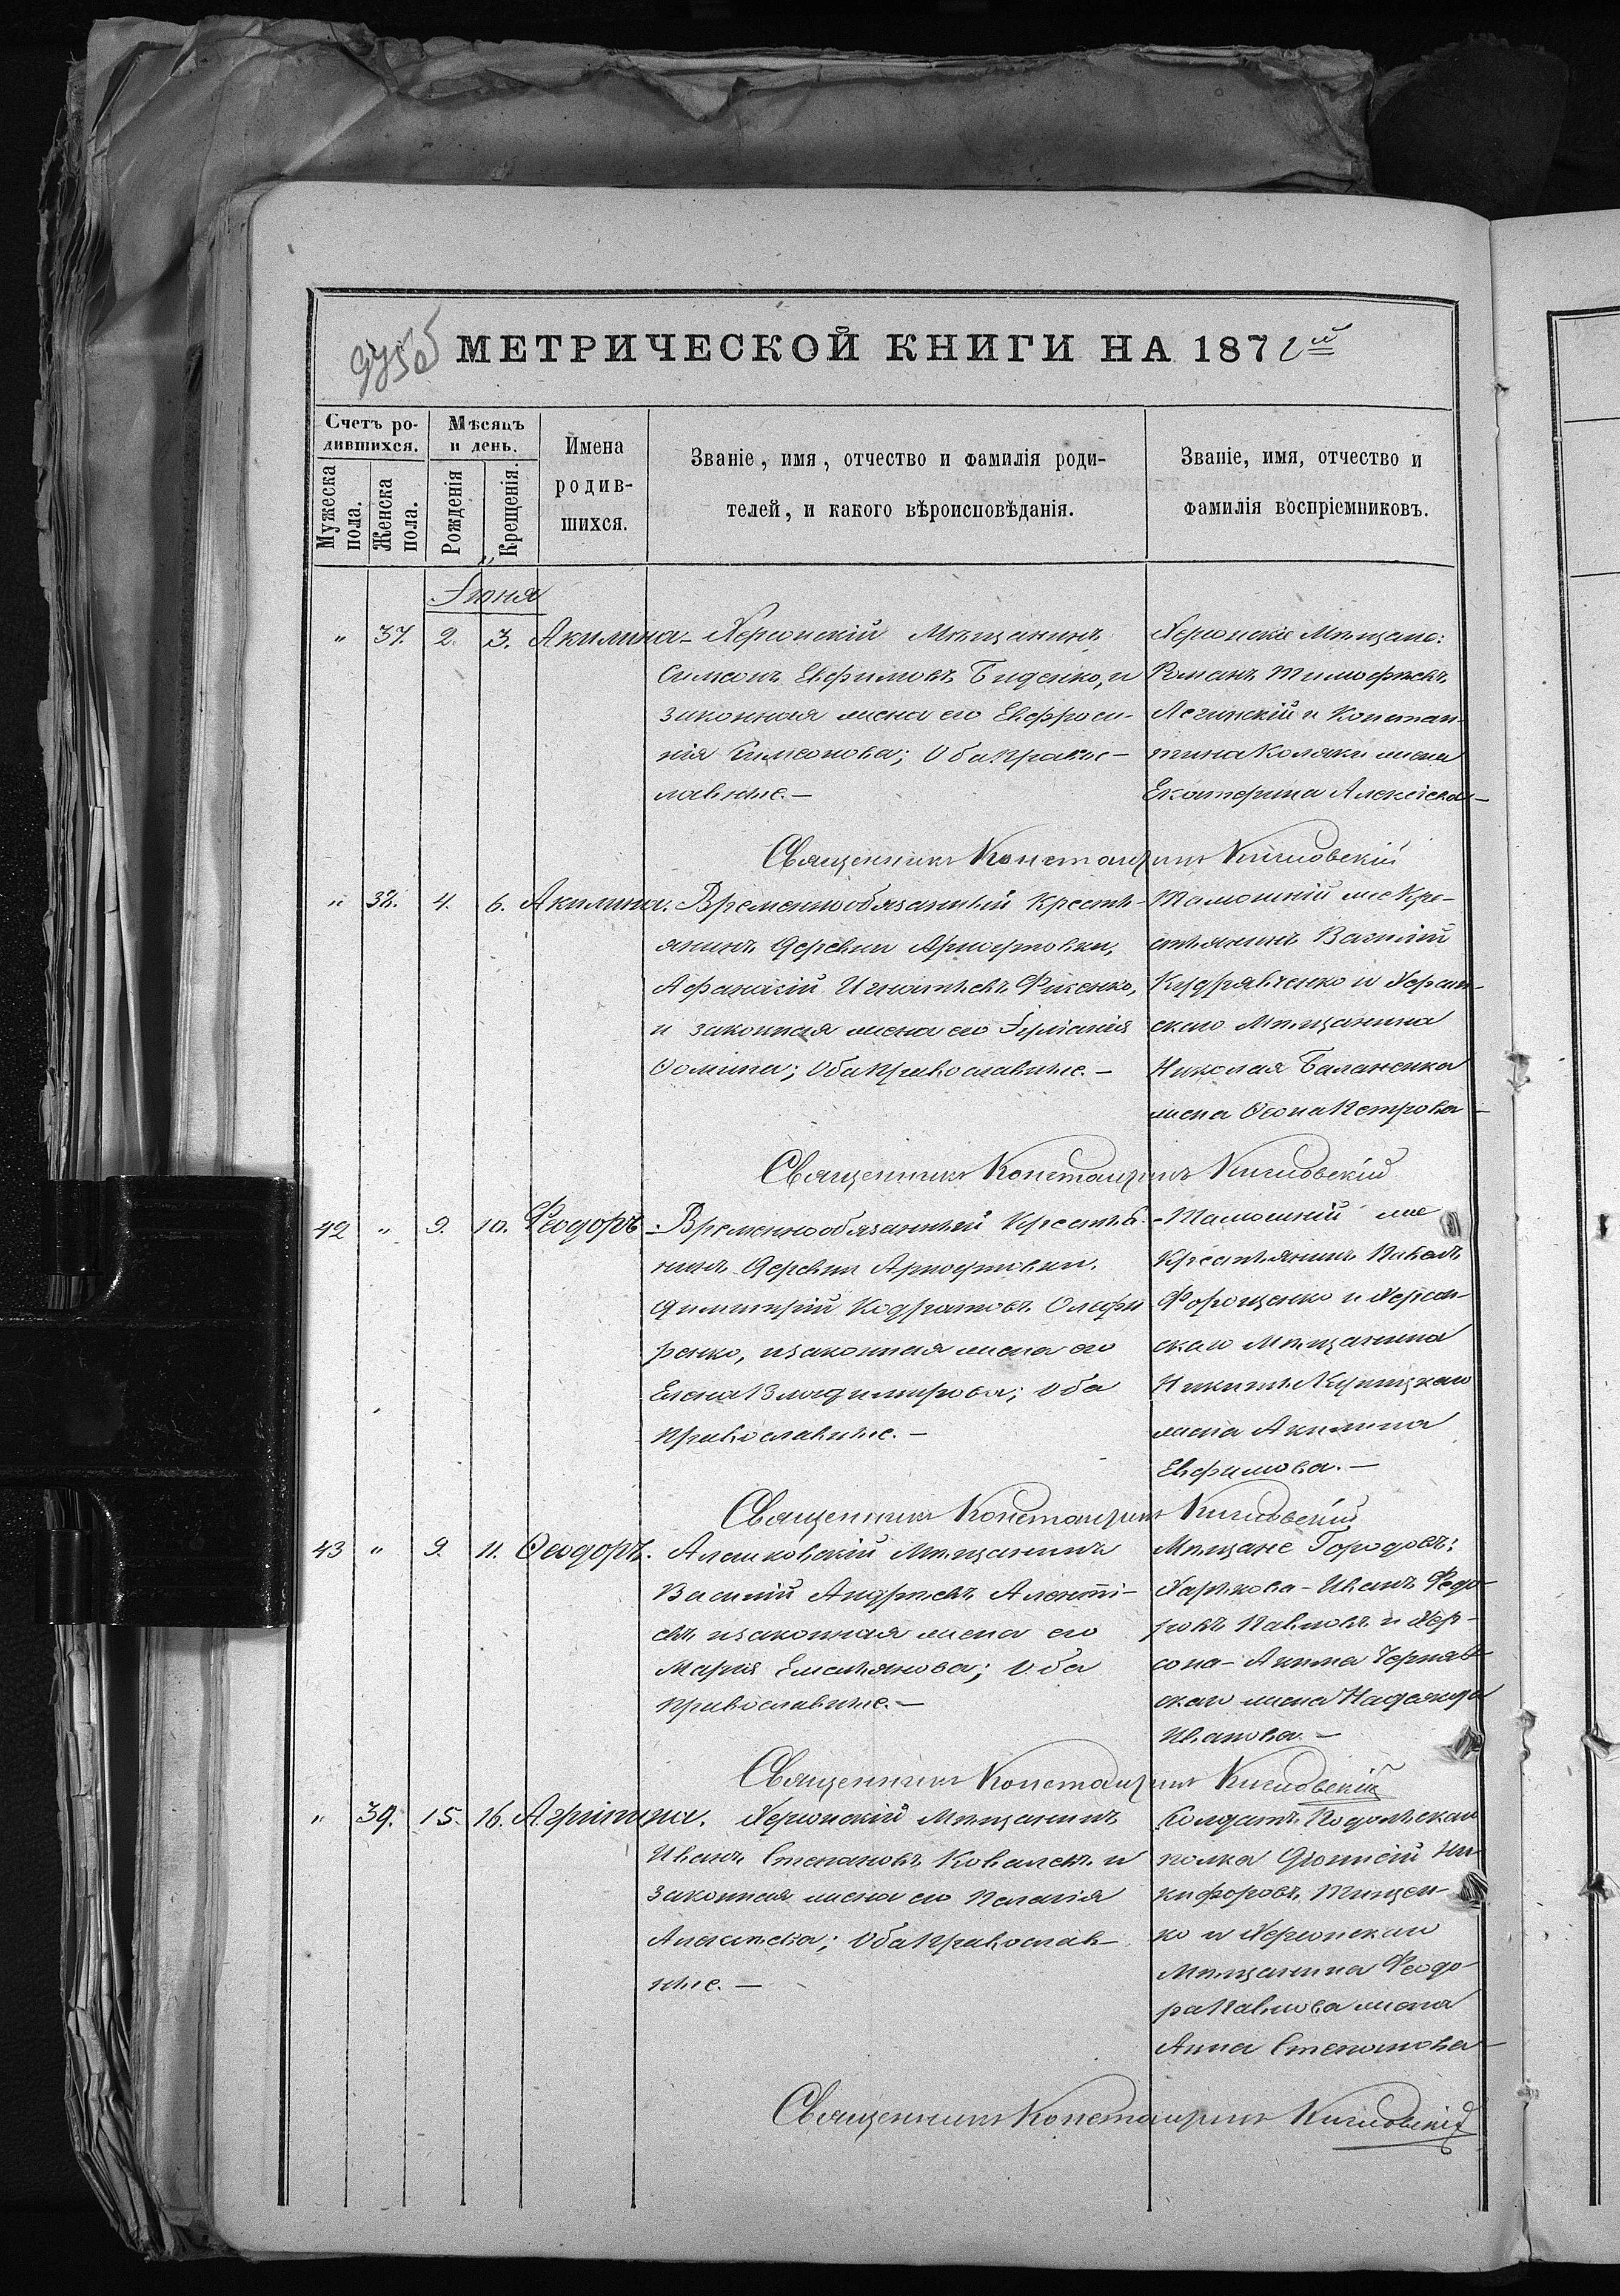 МЕТРИЧЕСКОЙ КНИГИ НА 187
Счетъ ро-
дившихся.
Мѣсяцъ
и день.
Имена
родив-
шихся.
Званіе, имя, отчество и фамилія роди-
телей, и какого вѣроисповѣданія.
Званіе, имя, отчество и
фамилія воспріемниковъ.
Мужеска
пола.
Женска
пола.
Рожденія
Крещенія.
Іюня
" 37. 2. 3. Акилина - Херсонскій Мѣщанинъ
Симеонъ Евфимовъ Биденко, и
законная жена его Евфроси-
нія Симеонова; Оба правос-
лавные. -
Херсонскіе Мѣщане:
Романъ Тимофѣевъ
и Констан-
тина жена
Екатерина Алексѣева -
Священникъ Константинъ
" 38. 4. 6. Акилина. Временнообязанный Кресть-
янинъ Деревни
Афанасій Игнатьевъ Фисенко,
и законная жена его
Ѳомина; Оба православные. -
Тамошній же Кре-
стьянинъ Василій
Кудрявченко и Херсон-
скаго Мѣщанина
Николая Баланенка
жена Петрова -
Священникъ Константинъ
42 " 9. 10. Феодоръ - Временнообязанный Крестья-
нинъ Деревни
Димитрій Кодратовъ Олефи
ренко, и законная жена его
Елена Владимирова; Оба
православные. -
- Тамошній же
Крестьянинъ Павелъ
и Херсон-
скаго Мѣщанина
Никиты
жена Акилина
Евфимова. -
Священникъ Константинъ
43 " 9. 11. Ѳеодоръ. Алешковскій Мѣщанинъ
Василій Андреевъ
и законная жена его
Марія Емельянова; Оба
православные. -
Мѣщане Городовъ:
Харькова - Иванъ Федо-
ровъ Павловъ и Хер-
сона - Черняв-
скаго жена Надежда
Иванова -
Священникъ Константинъ
" 39. 15. 16. Агрипина. Херсонскій Мѣщанинъ
Иванъ Степановъ Ковалевъ и
законная жена его Пелагія
Алексѣева; Оба православ-
ные. -
Солдатъ Подольскаго
полка Діонисій Ни-
кифоровъ Тищен-
ко и Херсонскаго
Мѣщанина Феодо-
ра Павлова жена
Анна Степанова -
Священникъ Константинъ